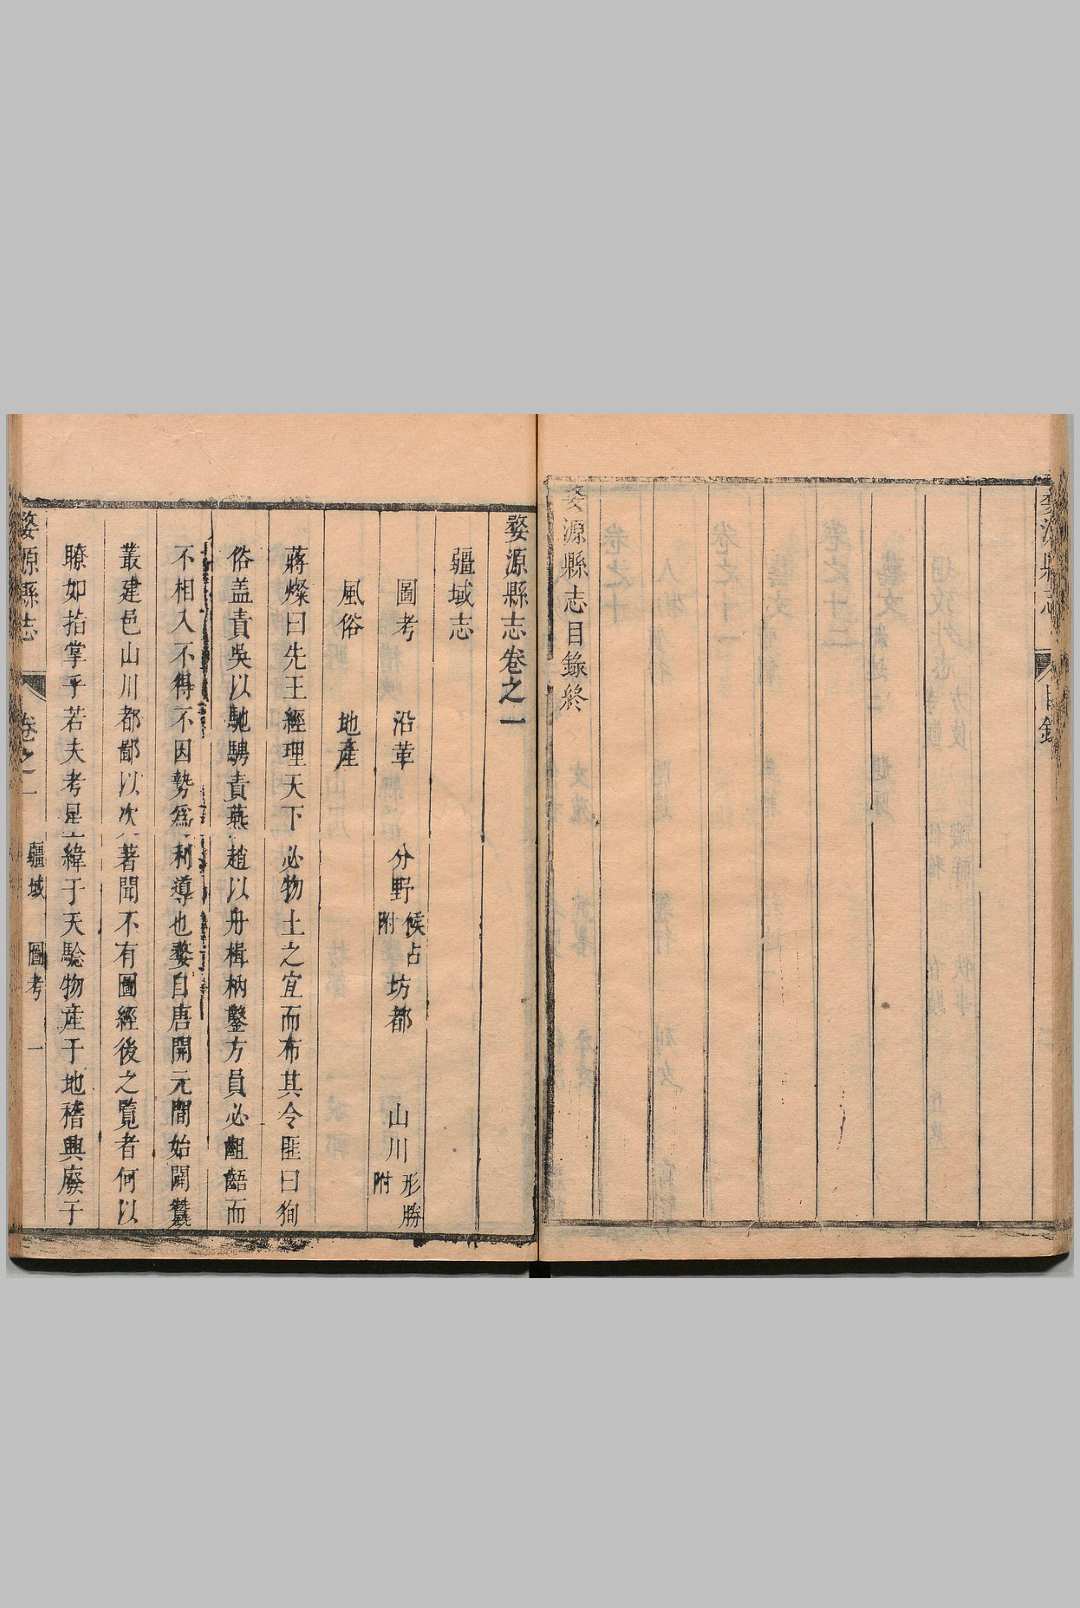 婺源縣志 目錄
婺源縣志目錄終
婺源縣志卷之一
疆域志
圖考 沿革 分野 候占附 坊都 山川 形勝附
風俗 地產
蔣燦曰先王經理天下必物土之宜而布其令匪曰狥
俗盖責吳以馳騁責燕趙以舟楫枘鑿方員必齟齬而
不相入不得不因勢爲利導也婺自唐開元間始開鼗
叢建邑山川都鄙以次著聞不有圖經後之覧者何以
瞭如指掌乎若夫考星緯于天騐物産于地稽興廢于
婺源縣志 卷之一 疆域 圖考 一